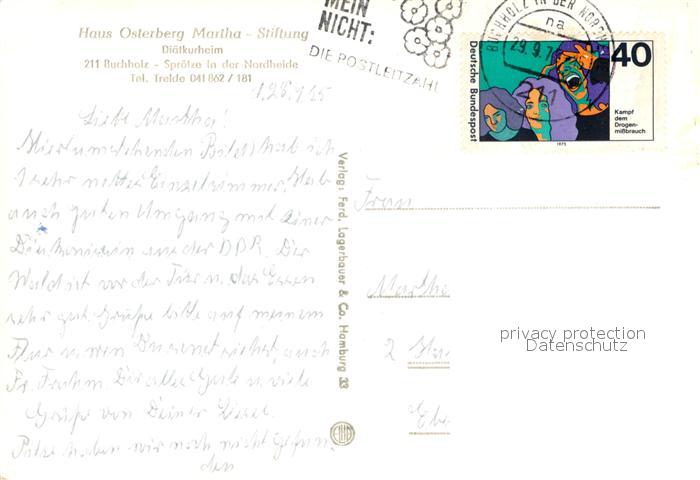 Haus Osterberg Martha - Stiftung
Diätkurheim
211 Buchholz - Sprötze in der Nordheide
Tel. Trelde 041 862 / 181
MEIN
NICHT:
DIE POSTLEITZAHL
BUCHHOLZ IN DER NORDH
na
29.9.7
Deutsche Bundespost
40
Kampf
dem
Drogen-
mißbrauch
1975
Liebe Martha!
Hierumstehenden Bilde hab ich
1 sehr nettes Einzelzimmer. Hab
auch guten Umgang mit einer
Diakonissin aus der DDR. Der
Wald ist vor der Tür u. das Essen
sehr gut. Grüße bitte auf meinem
Flur wenn Du
auch
Fr. Frahm. Dir alles Gute u. viele
Grüße von Deiner Liesel.
Pilze haben wir noch nicht gefun-
den
Verlag: Ferd. Lagerbauer & Co. Hamburg 33
Frau
Martha
2
privacy protection
Datenschutz